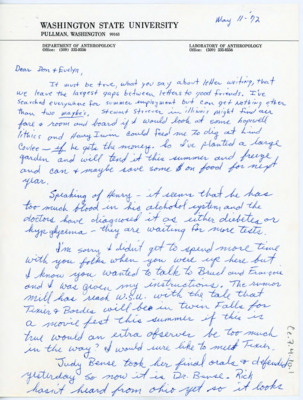 May 11-'72
WASHINGTON STATE UNIVERSITY
PULLMAN, WASHINGTON 99163
DEPARTMENT OF ANTHROPOLOGY
Office: (509) 335-3556
LABORATORY OF ANTHROPOLOGY
Office: (509) 335-8556
Dear Don & Evelyn,
It must be true, what you say about letter writing, that
we leave the largest gaps between letters to good friends. I've
searched everywhere for summer employment but can get nothing other
than two maybes, Stewart Struever in Illinois might find air
fare & room and board if I would look at some hopwell
lithics and Henry Irwin could feed me to dig at hind
Cevlee - if he gets the money. So I've planted a large
garden and will tend it this summer and freeze
and can & maybe save some $ on food for next
year.
Speaking of Henry - it seems that he has
too much blood in his alcohol system, and the
doctors have diagnosed it as either diabetes or
hypglycemia - they are waiting for more tests.
I'm sorry I didn't get to spend more time
with you folks when you were up here but
I know you wanted to talk to Bruce and Francois
and I was given my instructions. The rumor
mill has reach W.S.U. with the talk that
Tixier & Bordes will be in Twin Falls for
a movie fest this summer if this is
true would an extra observer be too much
in the way? I would sure like to meet Tixier.
Judy Bense took her final orals & defended
yesterday so now it is Dr. Bense. Rick
hasn't heard from Ohio yet so it looks